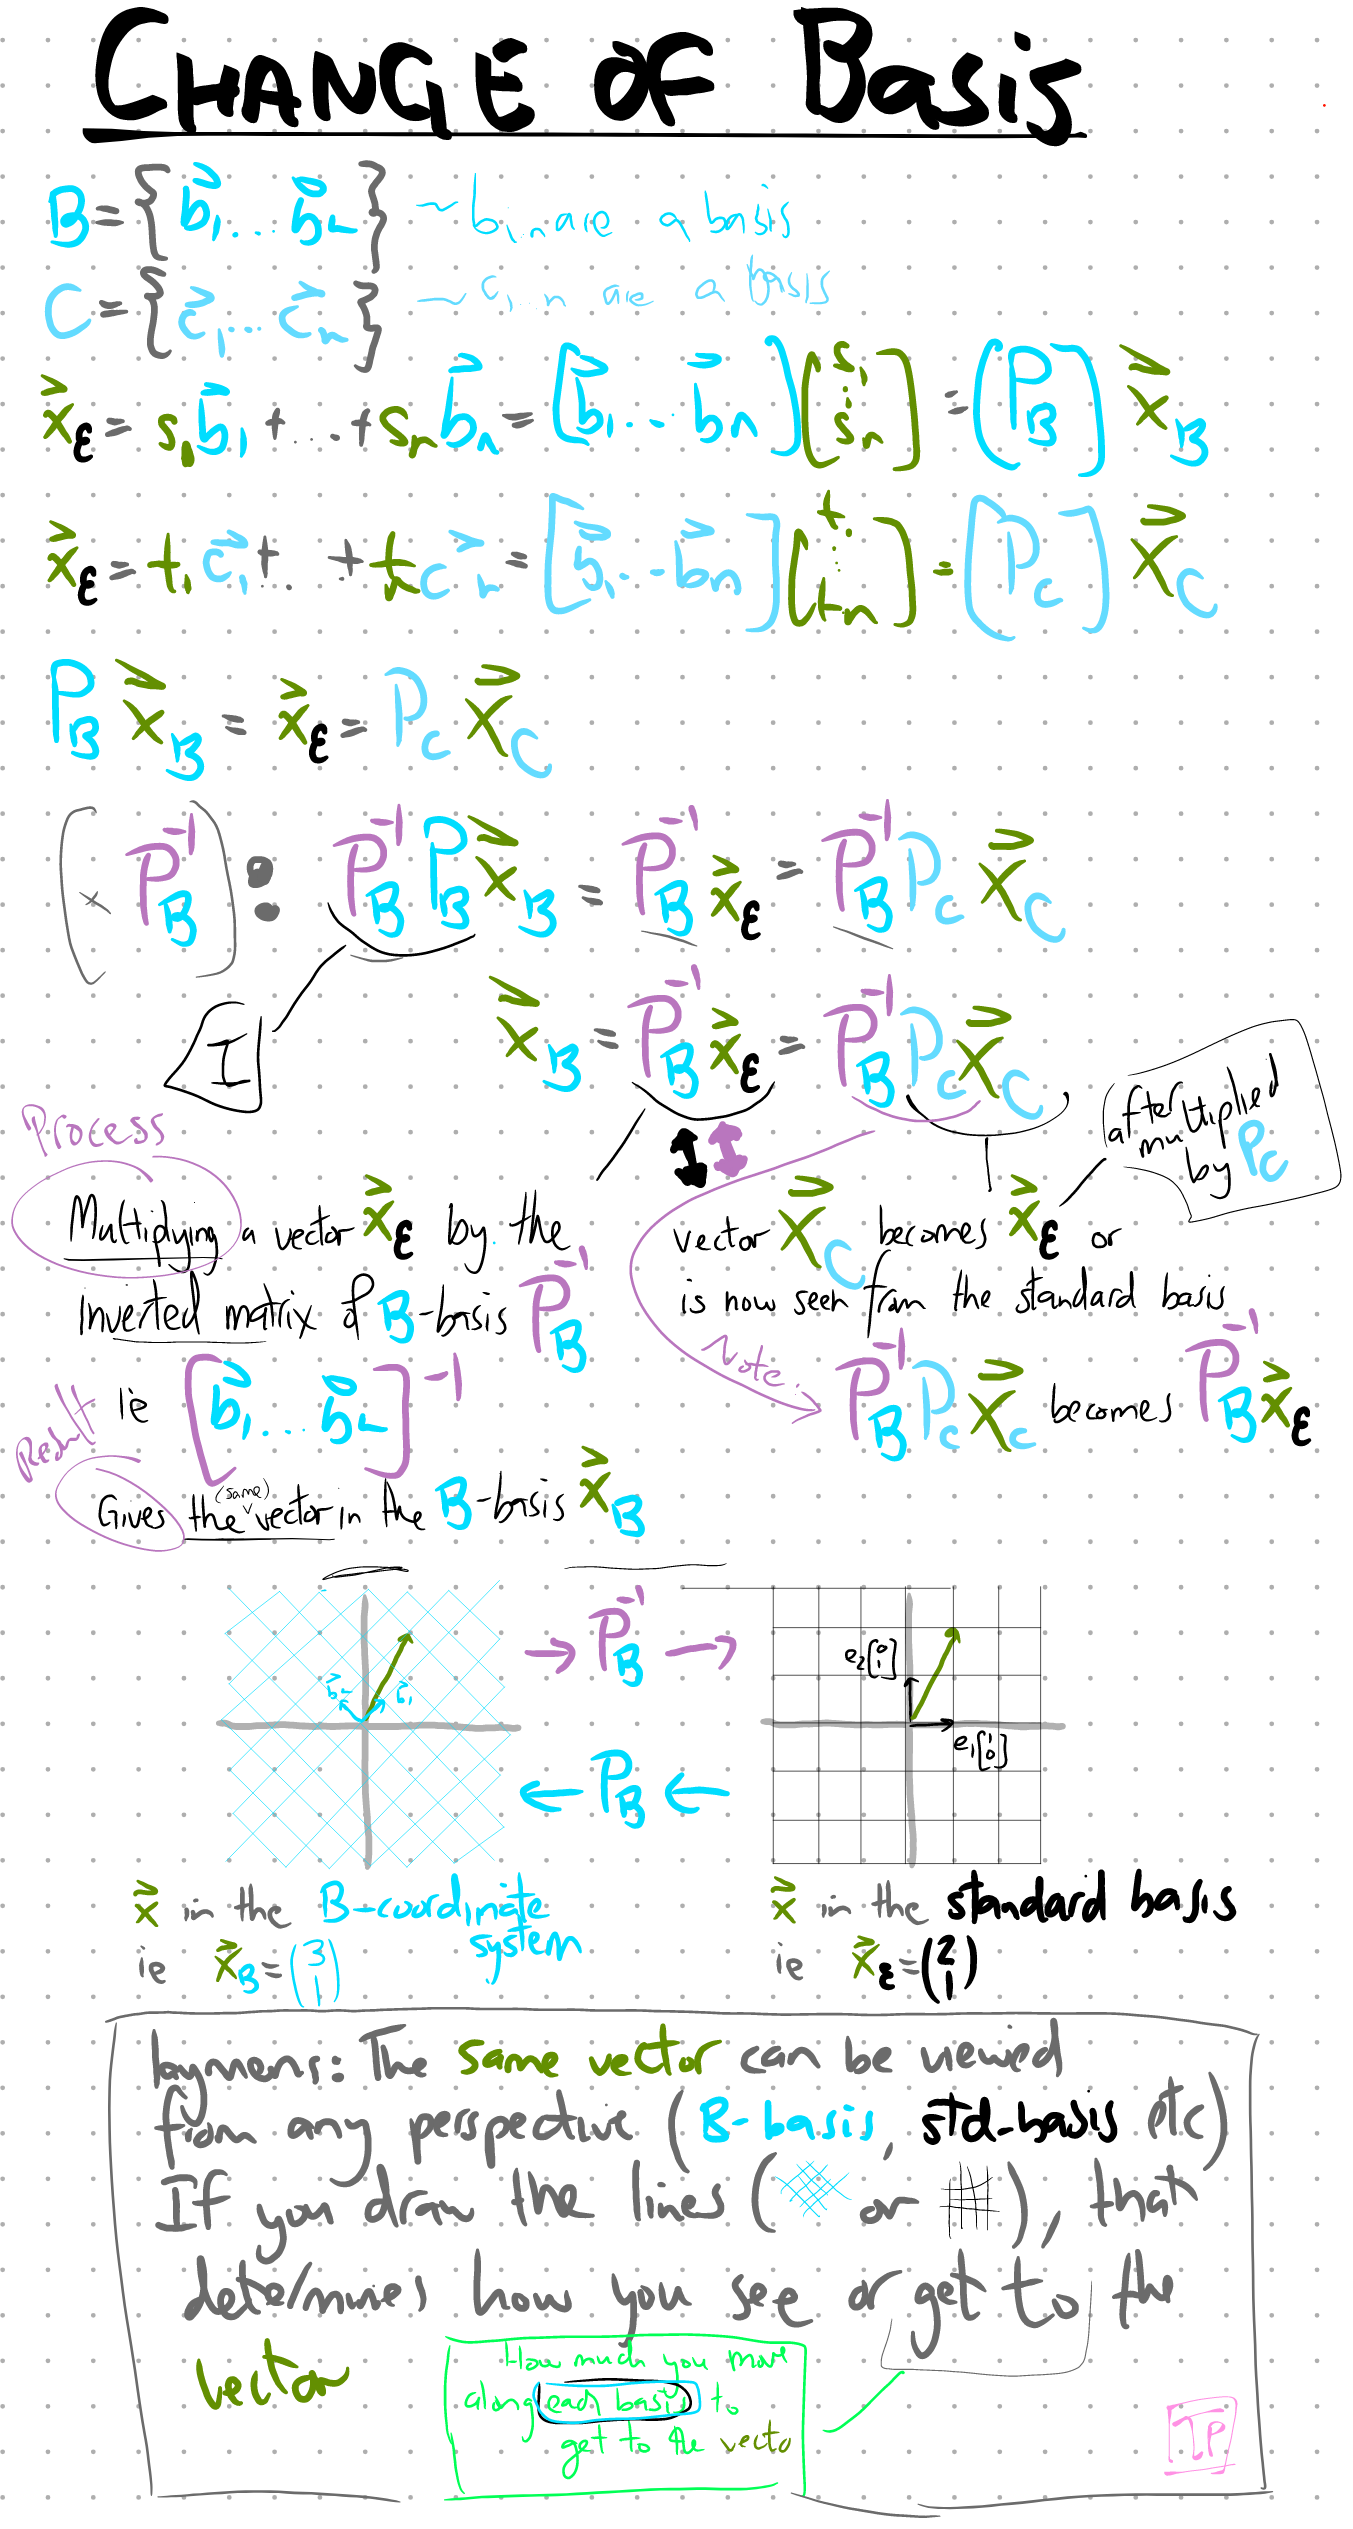 CHANGE OF Basis
B = { b⃗₁ ... b⃗ₙ } ~ b₁..ₙ are a basis
C = { c⃗₁ ... c⃗ₙ } ~ c₁...n are a basis
x⃗_ε = s₁b⃗₁ + ... + sₙb⃗ₙ = [b⃗₁ ... b⃗ₙ] [s₁ ⋮ sₙ] = (P_B) x⃗_B
x⃗_ε = t₁c⃗₁ + .. + tₙc⃗ₙ = [b⃗₁ ... b⃗ₙ] [t₁ ⋮ tₙ] = (P_C) x⃗_C
P_B x⃗_B = x⃗_ε = P_C x⃗_C
(× P_B⁻¹) : P_B⁻¹ P_B x⃗_B = P_B⁻¹ x⃗_ε = P_B⁻¹ P_C x⃗_C
I
x⃗_B = P_B⁻¹ x⃗_ε = P_B⁻¹ P_C x⃗_C
after
multiplied
by P_C
Process
Multiplying a vector x⃗_ε by the
inverted matrix of B-basis P_B⁻¹
ie [b⃗₁ ... b⃗ₙ]⁻¹
Result
Gives the (same) vector in the B-basis x⃗_B
vector x⃗_C becomes x⃗_ε or
is now seen from the standard basis
Note:
P_B⁻¹ P_C x⃗_C becomes P_B⁻¹ x⃗_ε
b⃗₂ b⃗₁
→ P_B⁻¹ →
← P_B ←
e₂[0 1]
e₁[1 0]
x⃗ in the B-coordinate
system
ie x⃗_B = (3 1)
x⃗ in the standard basis
ie x⃗_ε = (2 1)
laymens: The same vector can be viewed
from any perspective (B-basis, std-basis etc)
If you draw the lines ( or ), that
determines how you see or get to the
vector
How much you move
along each basis to
get to the vecto
TP